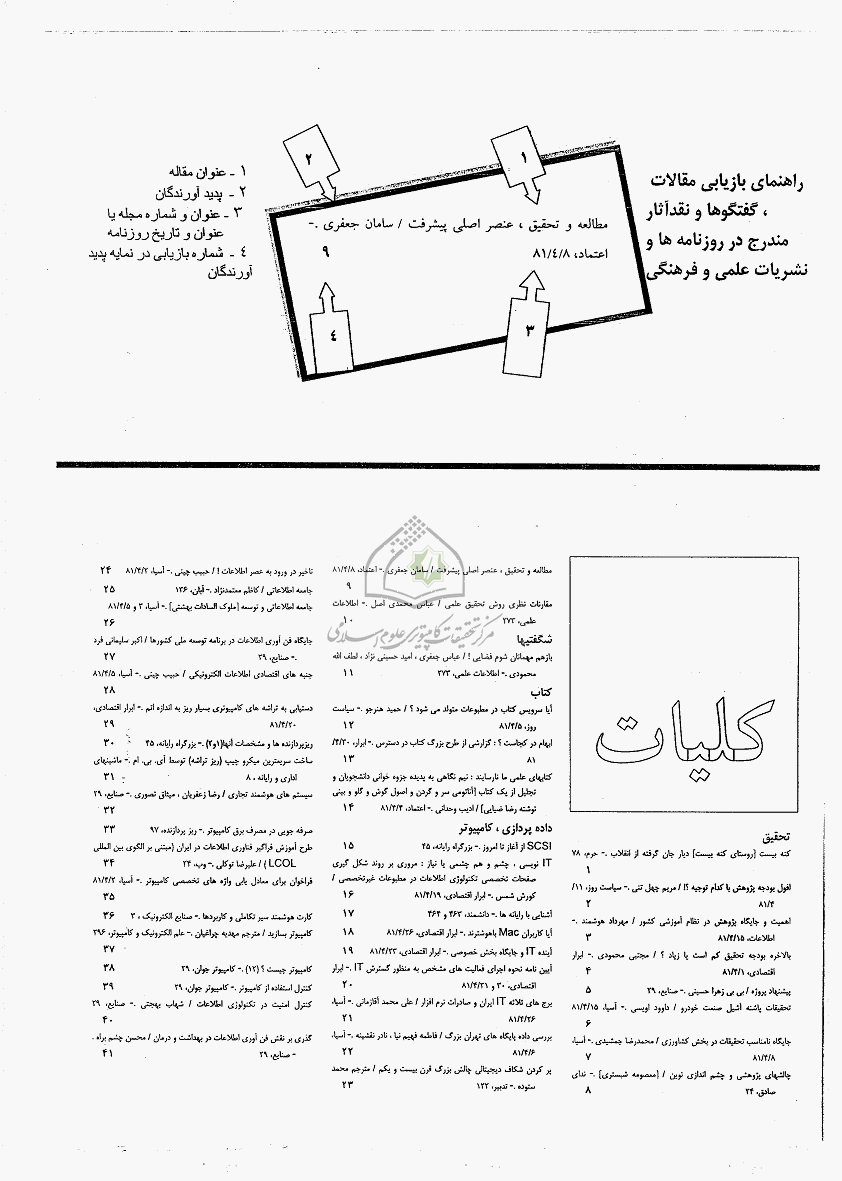 راهنمای بازیابی مقالات
، گفتگوها و نقدآثار
مندرج در روزنامه ها و
نشریات علمی و فرهنگی
۱
۲
مطالعه و تحقیق ، عنصر اصلی پیشرفت / سامان جعفری .-
اعتماد، ۸۱/٤/۸
۹
۳
٤
۱ ـ عنوان مقاله
۲ ـ پدید آورندگان
۳ ـ عنوان و شماره مجله یا
عنوان و تاریخ روزنامه
٤ ـ شماره بازیابی در نمایه پدید
آورندگان
کلیات
تحقیق
کته بیست [روستای کته بیست] دیار جان گرفته از انقلاب .- حرم، ۷۸
۱
افول بودجه پژوهش یا کدام توجیه ؟! / مریم چهل تنی .- سیاست روز، ۱۱/
۸۱/۴
۲
اهمیت و جایگاه پژوهش در نظام آموزشی کشور / مهرداد هوشمند .-
اطلاعات، ۸۱/۴/۱۵
۳
بالاخره بودجه تحقیق کم است یا زیاد ؟ / مجتبی محمودی .- ابرار
اقتصادی، ۸۱/۴/۱
۴
پیشنهاد پروژه / بی بی زهرا حسینی .- صنایع، ۲۹
۵
تحقیقات پاشنه آشیل صنعت خودرو / داوود اویسی .- آسیا، ۸۱/۴/۱۵
۶
جایگاه نامناسب تحقیقات در بخش کشاورزی / محمدرضا جمشیدی .- آسیا،
۸۱/۴/۸
۷
چالشهای پژوهشی و چشم اندازی نوین / [معصومه شبستری] .- ندای
صادق، ۲۴
۸
مطالعه و تحقیق ، عنصر اصلی پیشرفت / سامان جعفری .- اعتماد، ۸۱/۴/۸
۹
مقارنات نظری روش تحقیق علمی / عباس محمدی اصل .- اطلاعات
علمی، ۲۷۳
۱۰
مرکز تحقیقات کامپیوتری علوم اسلامی
شگفتیها
بازهم مهمانان شوم فضایی ! / عباس جعفری ، امید حسینی نژاد ، لطف الله
محمودی .- اطلاعات علمی، ۲۷۳
۱۱
کتاب
آیا سرویس کتاب در مطبوعات متولد می شود ؟ / حمید هنرجو .- سیاست
روز، ۸۱/۴/۵
۱۲
ابهام در کجاست ؟ : گزارشی از طرح بزرگ کتاب در دسترس .- ابرار، ۴/۳۰/
۸۱
۱۳
کتابهای علمی ما نارسایند : نیم نگاهی به پدیده جزوه خوانی دانشجویان و
تجلیل از یک کتاب [آناتومی سر و گردن و اصول گوش و گلو و بینی
نوشته رضا ضیایی] / ادیب وحدانی .- اعتماد، ۸۱/۴/۴
۱۴
داده پردازی ، کامپیوتر
SCSI از آغاز تا امروز .- بزرگراه رایانه، ۴۵
۱۵
IT نویسی ، چشم و هم چشمی یا نیاز : مروری بر روند شکل گیری
صفحات تخصصی تکنولوژی اطلاعات در مطبوعات غیرتخصصی /
کورش شمس .- ابرار اقتصادی، ۸۱/۴/۱۹
۱۶
آشنایی با رایانه ها .- دانشمند، ۴۶۳ و ۴۶۴
۱۷
آیا کاربران Mac باهوشترند .- ابرار اقتصادی، ۸۱/۴/۲۶
۱۸
آینده IT و جایگاه بخش خصوصی .- ابرار اقتصادی، ۸۱/۴/۲۳
۱۹
آیین نامه نحوه اجرای فعالیت های مشخص به منظور گسترش IT .- ابرار
اقتصادی، ۳۰ و ۸۱/۴/۳۱
۲۰
برج های ثلاثه IT ایران و صادرات نرم افزار / علی محمد آقازمانی .- آسیا،
۸۱/۴/۲۶
۲۱
بررسی داده پایگاه های تهران بزرگ / فاطمه فهیم نیا ، نادر نقشینه .- آسیا،
۸۱/۴/۶
۲۲
پر کردن شکاف دیجیتالی چالش بزرگ قرن بیست و یکم / مترجم محمد
ستوده .- تدبیر، ۱۲۲
۲۳
تاخیر در ورود به عصر اطلاعات ! / حبیب چینی .- آسیا، ۸۱/۴/۲
۲۴
جامعه اطلاعاتی / کاظم معتمدنژاد .- آبان، ۱۲۶
۲۵
جامعه اطلاعاتی و توسعه [ملوک السادات بهشتی] .- آسیا، ۳ و ۸۱/۴/۵
۲۶
جایگاه فن آوری اطلاعات در برنامه توسعه ملی کشورها / اکبر سلیمانی فرد
.- صنایع، ۲۹
۲۷
جنبه های اقتصادی اطلاعات الکترونیکی / حبیب چینی .- آسیا، ۸۱/۴/۵
۲۸
دستیابی به تراشه های کامپیوتری بسیار ریز به اندازه اتم .- ابرار اقتصادی،
۸۱/۴/۲۰
۲۹
ریزپردازنده ها و مشخصات آنها(۱و۲) .- بزرگراه رایانه، ۴۵
۳۰
ساخت سریعترین میکرو چیپ (ریز تراشه) توسط آی. بی. ام .- ماشینهای
اداری و رایانه ، ۸
۳۱
سیستم های هوشمند تجاری / رضا زعفریان ، میثاق تصوری .- صنایع، ۲۹
۳۲
صرفه جویی در مصرف برق کامپیوتر .- ریز پردازنده، ۹۷
۳۳
طرح آموزش فراگیر فناوری اطلاعات در ایران (مبتنی بر الگوی بین المللی
LCOL ) / علیرضا توکلی .- وب، ۲۴
۳۴
فراخوان برای معادل یابی واژه های تخصصی کامپیوتر .- آسیا، ۸۱/۴/۲
۳۵
کارت هوشمند سیر تکاملی و کاربردها .- صنایع الکترونیک ، ۲
۳۶
کامپیوتر بسازید / مترجم مهدیه چراغیان .- علم الکترونیک و کامپیوتر، ۲۹۶
۳۷
کامپیوتر چیست ؟ (۱۲) .- کامپیوتر جوان، ۲۹
۳۸
کنترل استفاده از کامپیوتر .- کامپیوتر جوان، ۲۹
۳۹
کنترل امنیت در تکنولوژی اطلاعات / شهاب بهجتی .- صنایع، ۲۹
۴۰
گذری بر نقش فن آوری اطلاعات در بهداشت و درمان / محسن چشم براه .
- صنایع، ۲۹
۴۱